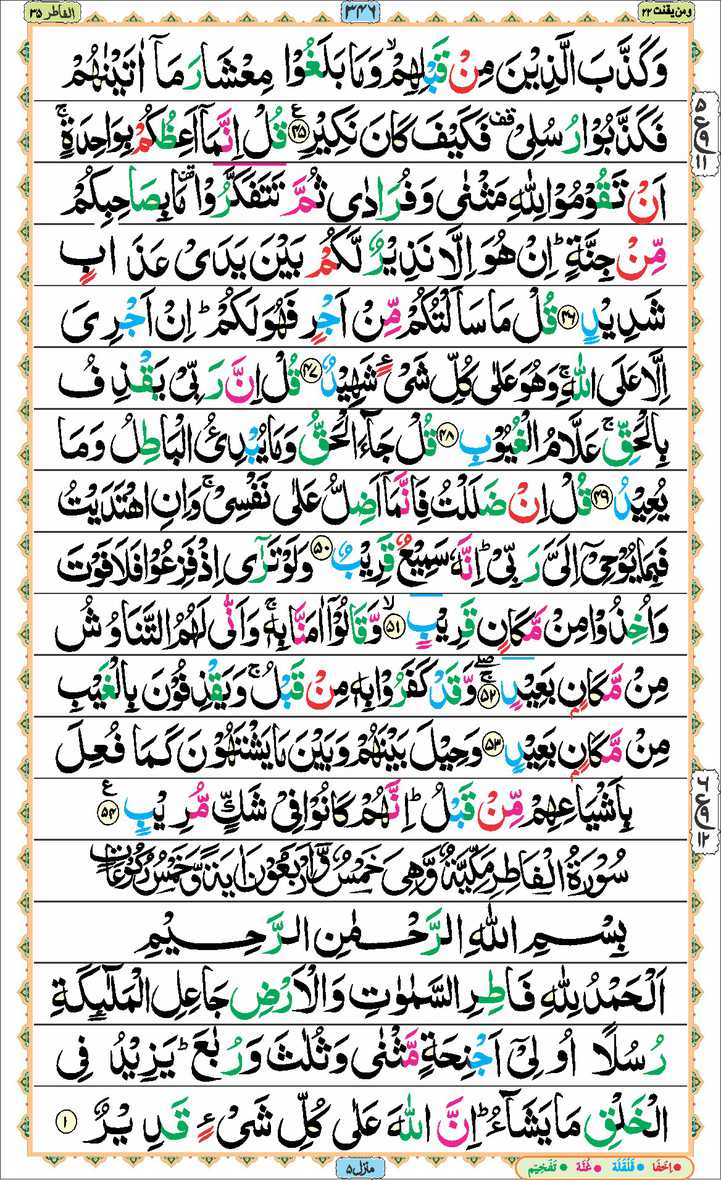 ومن یقنت ۲۲
۳۴۶
الفاطر ۳۵
وَكَذَّبَ الَّذِیْنَ مِنْ قَبْلِهِمْ ۙ وَمَا بَلَغُوْا مِعْشَارَ مَاۤ اٰتَیْنٰهُمْ
فَكَذَّبُوْا رُسُلِیْ ۫ قف فَكَیْفَ كَانَ نَكِیْرِ ۴۵ ع قُلْ اِنَّمَاۤ اَعِظُكُمْ بِوَاحِدَةٍ ۚ
اَنْ تَقُوْمُوْا لِلّٰهِ مَثْنٰی وَفُرَادٰی ثُمَّ تَتَفَكَّرُوْا ۫ مَا بِصَاحِبِكُمْ
مِّنْ جِنَّةٍ ؕ اِنْ هُوَ اِلَّا نَذِیْرٌ لَّكُمْ بَیْنَ یَدَیْ عَذَابٍ
شَدِیْدٍ ۴۶ قُلْ مَا سَاَلْتُكُمْ مِّنْ اَجْرٍ فَهُوَ لَكُمْ ؕ اِنْ اَجْرِیَ
اِلَّا عَلَی اللّٰهِ ۚ وَهُوَ عَلٰی كُلِّ شَیْءٍ شَهِیْدٌ ۴۷ قُلْ اِنَّ رَبِّیْ یَقْذِفُ
بِالْحَقِّ ۚ عَلَّامُ الْغُیُوْبِ ۴۸ قُلْ جَآءَ الْحَقُّ وَمَا یُبْدِئُ الْبَاطِلُ وَمَا
یُعِیْدُ ۴۹ قُلْ اِنْ ضَلَلْتُ فَاِنَّمَاۤ اَضِلُّ عَلٰی نَفْسِیْ ۚ وَاِنِ اهْتَدَیْتُ
فَبِمَا یُوْحِیْۤ اِلَیَّ رَبِّیْ ؕ اِنَّهٗ سَمِیْعٌ قَرِیْبٌ ۵۰ وَلَوْ تَرٰۤی اِذْ فَزِعُوْا فَلَا فَوْتَ
وَاُخِذُوْا مِنْ مَّكَانٍ قَرِیْبٍ ۵۱ ۙ وَّقَالُوْۤا اٰمَنَّا بِهٖ ۚ وَاَنّٰی لَهُمُ التَّنَاوُشُ
مِنْ مَّكَانٍۭ بَعِیْدٍ ۵۲ ۚۖ وَّقَدْ كَفَرُوْا بِهٖ مِنْ قَبْلُ ۚ وَیَقْذِفُوْنَ بِالْغَیْبِ
مِنْ مَّكَانٍۭ بَعِیْدٍ ۵۳ وَحِیْلَ بَیْنَهُمْ وَبَیْنَ مَا یَشْتَهُوْنَ كَمَا فُعِلَ
بِاَشْیَاعِهِمْ مِّنْ قَبْلُ ؕ اِنَّهُمْ كَانُوْا فِیْ شَكٍّ مُّرِیْبٍ ۵۴ ع
سُوْرَةُ الْفَاطِرِ مَكِّیَّةٌ وَّهِیَ خَمْسٌ وَّاَرْبَعُوْنَ اٰیَةً وَّخَمْسُ رُكُوْعَاتٍ
بِسْمِ اللّٰهِ الرَّحْمٰنِ الرَّحِیْمِ
اَلْحَمْدُ لِلّٰهِ فَاطِرِ السَّمٰوٰتِ وَالْاَرْضِ جَاعِلِ الْمَلٰٓئِكَةِ
رُسُلًا اُولِیْۤ اَجْنِحَةٍ مَّثْنٰی وَثُلٰثَ وَرُبٰعَ ؕ یَزِیْدُ فِی
الْخَلْقِ مَا یَشَآءُ ؕ اِنَّ اللّٰهَ عَلٰی كُلِّ شَیْءٍ قَدِیْرٌ ۱
۵ ع ۱۱
۶ ع ۱۲
منزل ۵
اِخفَا قَلْقَلَة غُنَّة تَفْخِیْم